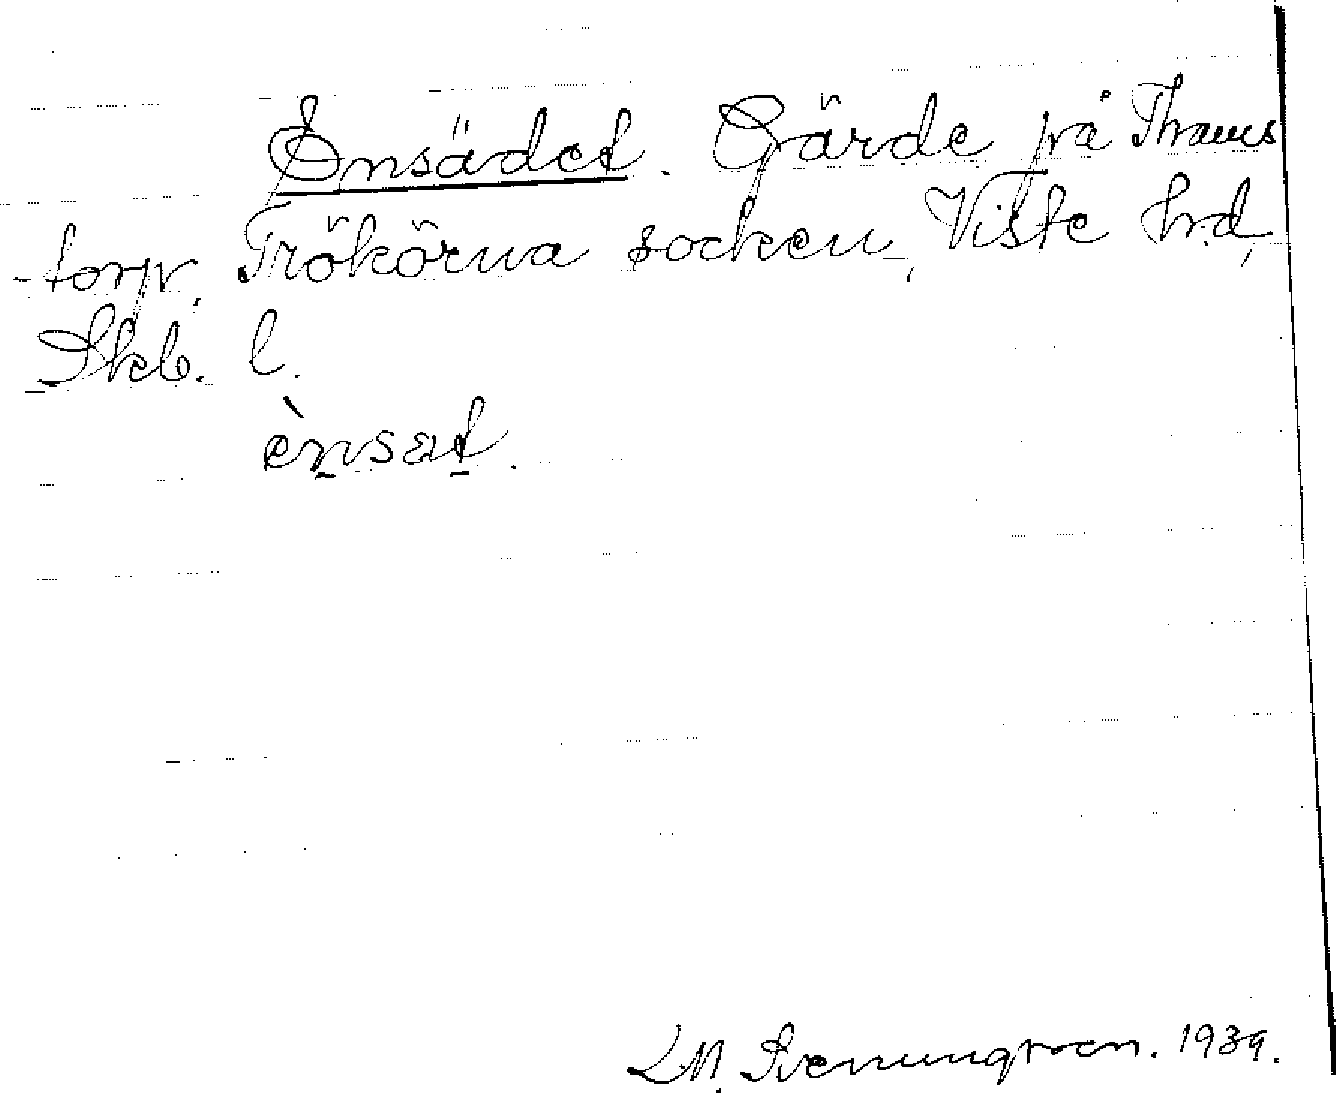 Ensädet. Gärde på Thams
-torp, Trökörna socken, Viste hrd,
Skb. l.
ènsæt.
L.M. Svenungsson. 1939.